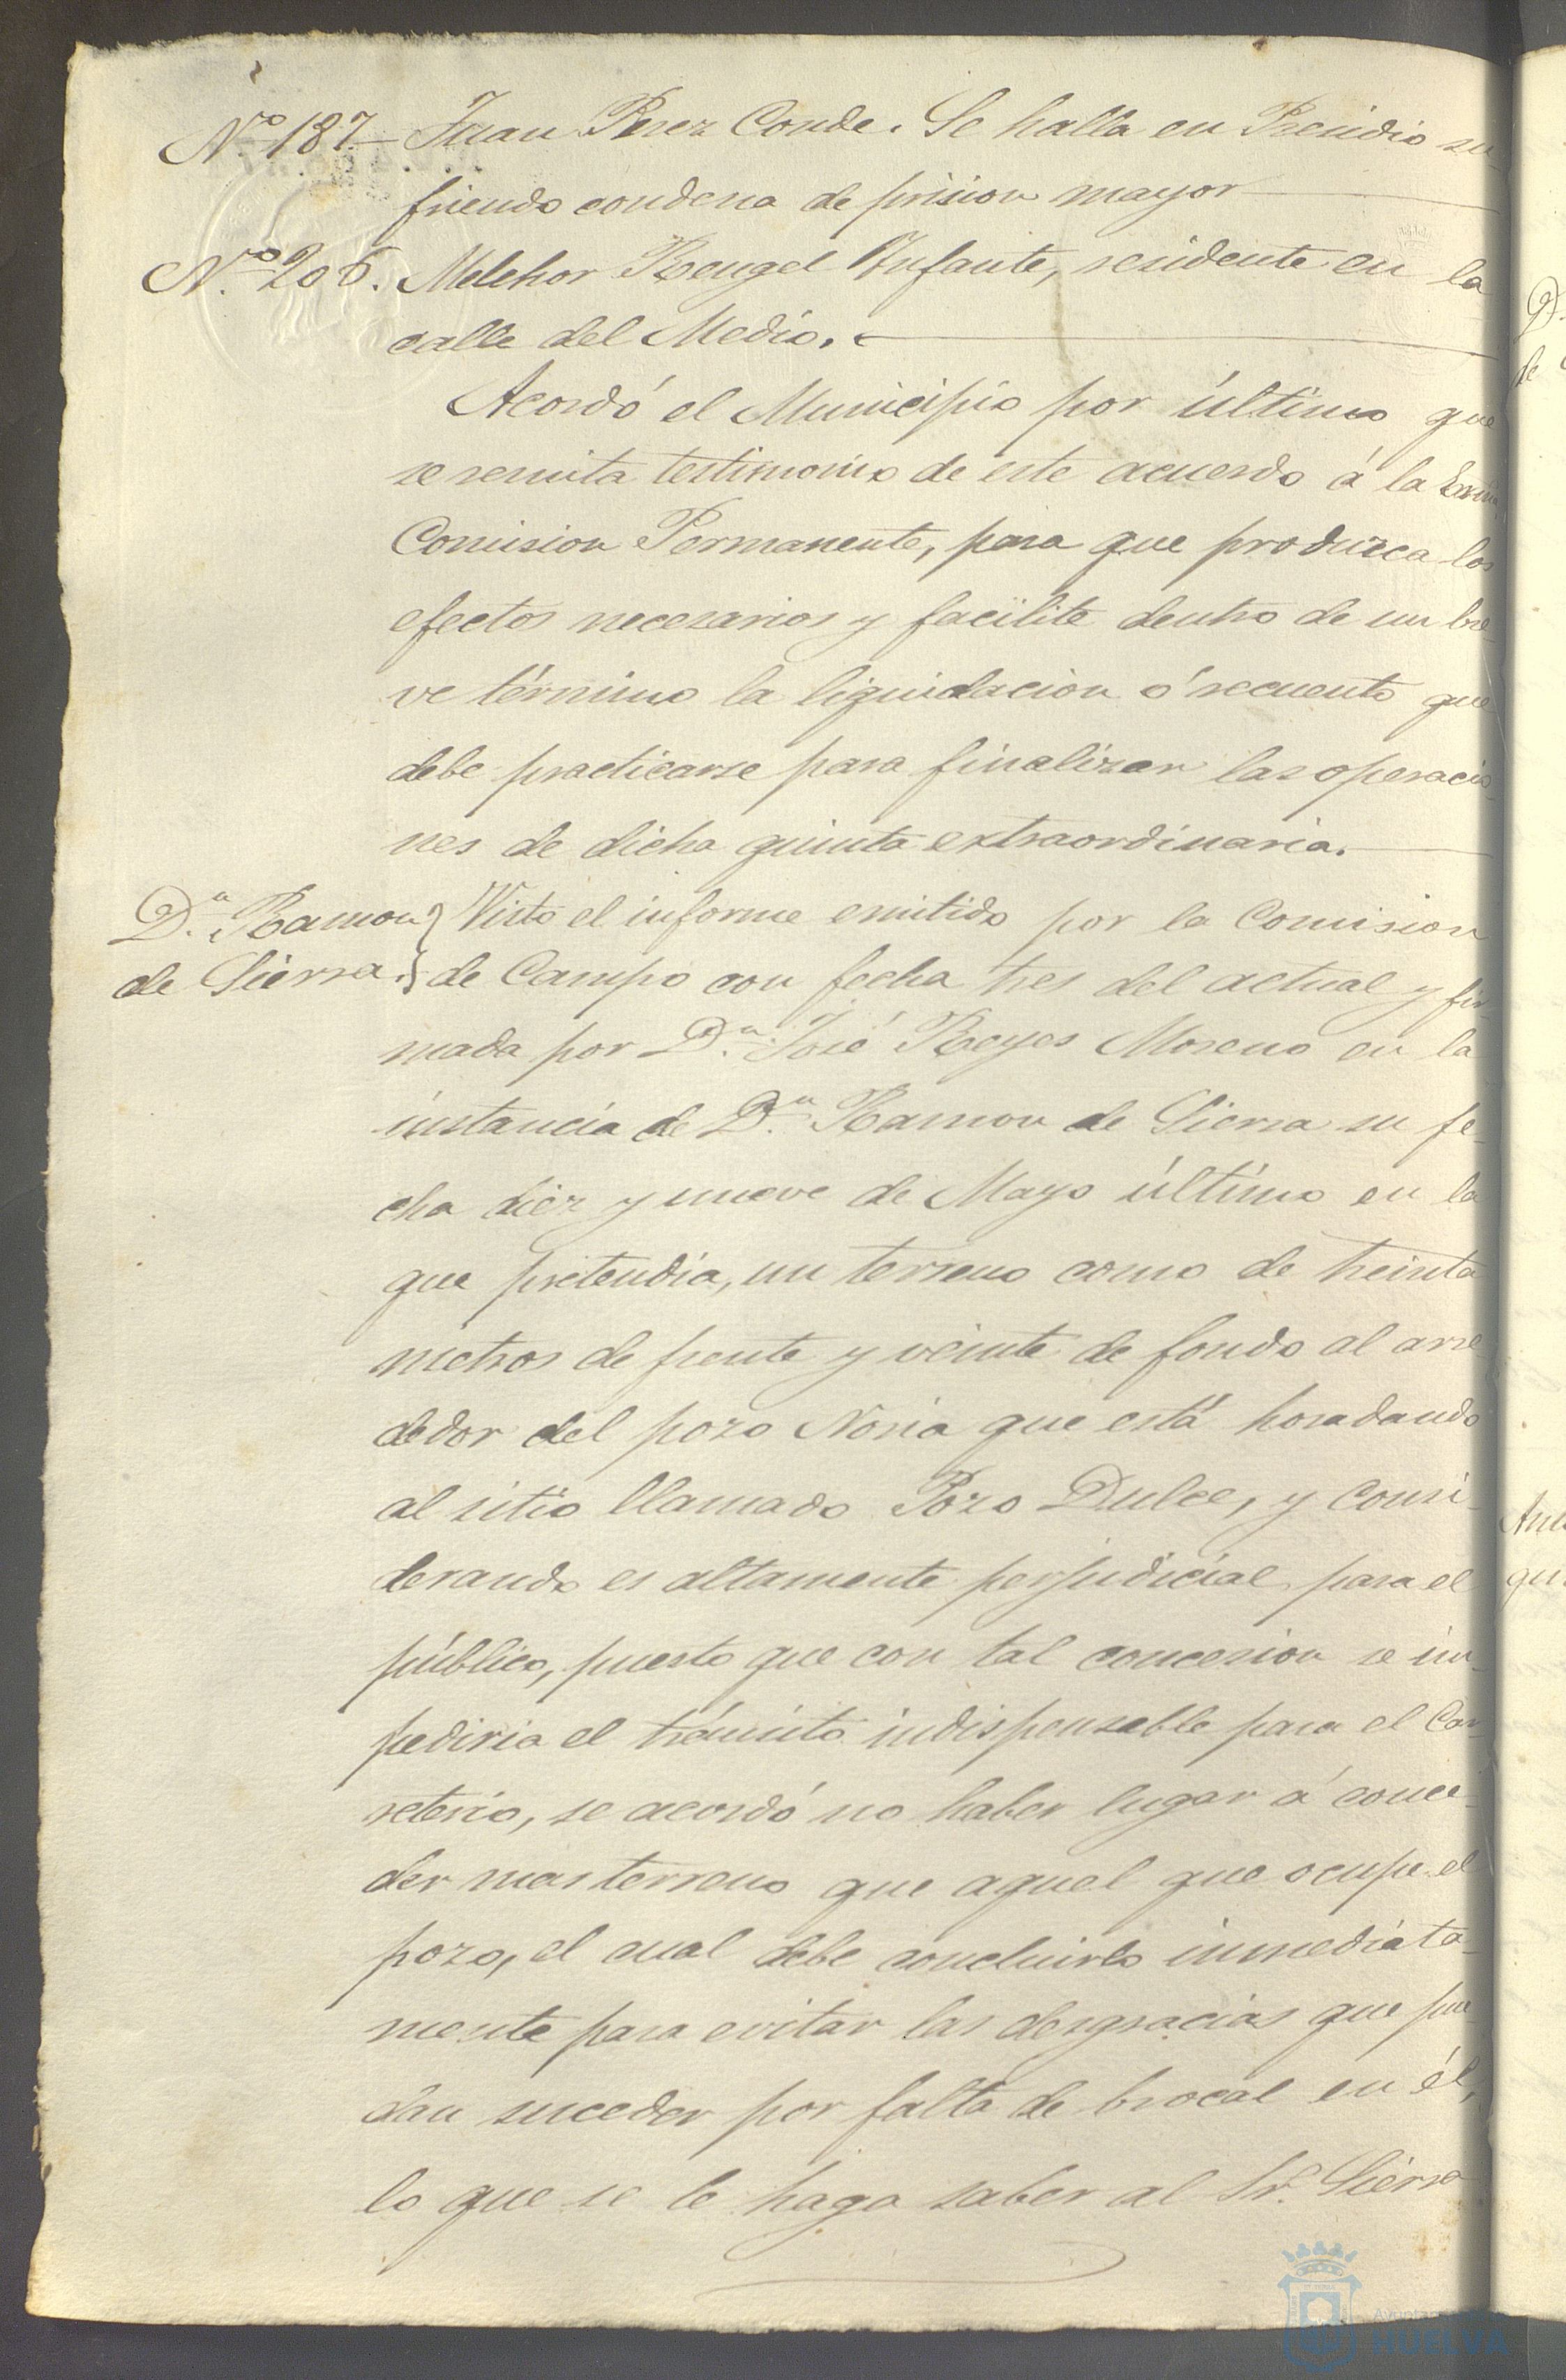 Nº 187 — Juan Perez Conde. Se halla en Presidio su
friendo condena de prision mayor
Nº 206. Melchor Rengel Infante, residente en la
calle del Medio.
Acordó el Municipio por último que
se remita testimonio de este acuerdo á la Exma
Comision Permanente, para que produzca los
efectos necesarios y facilite dentro de un bre-
ve término la liquidacion ó recuento que
debe practicarse para finalizar las operacio-
nes de dicha quinta extraordinaria.
Dn. Ramon
de Sierra.
Visto el informe emitido por la Comision
de Campo con fecha tres del actual y fir-
mada por Dn. José Reyes Moreno en la
instancia de Dn. Ramon de Sierra su fe-
cha diez y nueve de Mayo último en la
que pretendia, un terreno como de treinta
metros de frente y veinte de fondo al arre
dedor del pozo Noria que está horadando
al sitio llamado Pozo Dulce, y consi-
derando es altamente perjudicial para el
público, puesto que con tal concesion se im-
pediria el tránsito indispensable para el Car-
reterio, se acordó no haber lugar á conce-
der mas terreno que aquel que ocupe el
pozo, el cual debe concluirlo inmediata-
mente para evitar las desgracias que pue-
dan suceder por falta de brocal en él,
lo que se le haga saber al Sr. Sierra
HUELVA